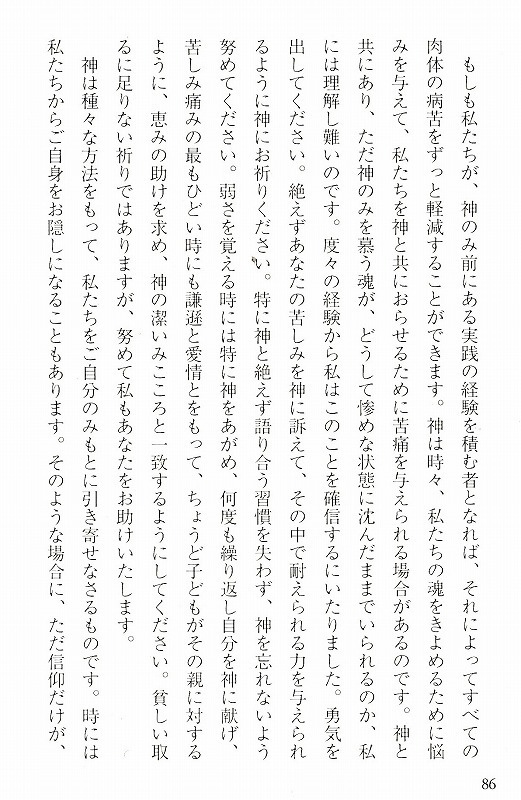 もしも私たちが、神のみ前にある実践の経験を積む者となれば、それによってすべての
肉体の病苦をずっと軽減することができます。神は時々、私たちの魂をきよめるために悩
みを与えて、私たちを神と共におらせるために苦痛を与えられる場合があるのです。神と
共にあり、ただ神のみを慕う魂が、どうして惨めな状態に沈んだままでいられるのか、私
には理解し難いのです。度々の経験から私はこのことを確信するにいたりました。勇気を
出してください。絶えずあなたの苦しみを神に訴えて、その中で耐えられる力を与えられ
るように神にお祈りください。特に神と絶えず語り合う習慣を失わず、神を忘れないよう
努めてください。弱さを覚える時には特に神をあがめ、何度も繰り返し自分を神に献げ、
苦しみ痛みの最もひどい時にも謙遜と愛情とをもって、ちょうど子どもがその親に対する
ように、恵みの助けを求め、神の潔いみこころと一致するようにしてください。貧しい取
るに足りない祈りではありますが、努めて私もあなたをお助けいたします。
神は種々な方法をもって、私たちをご自分のみもとに引き寄せなさるものです。時には
私たちからご自身をお隠しになることもあります。そのような場合に、ただ信仰だけが、
86